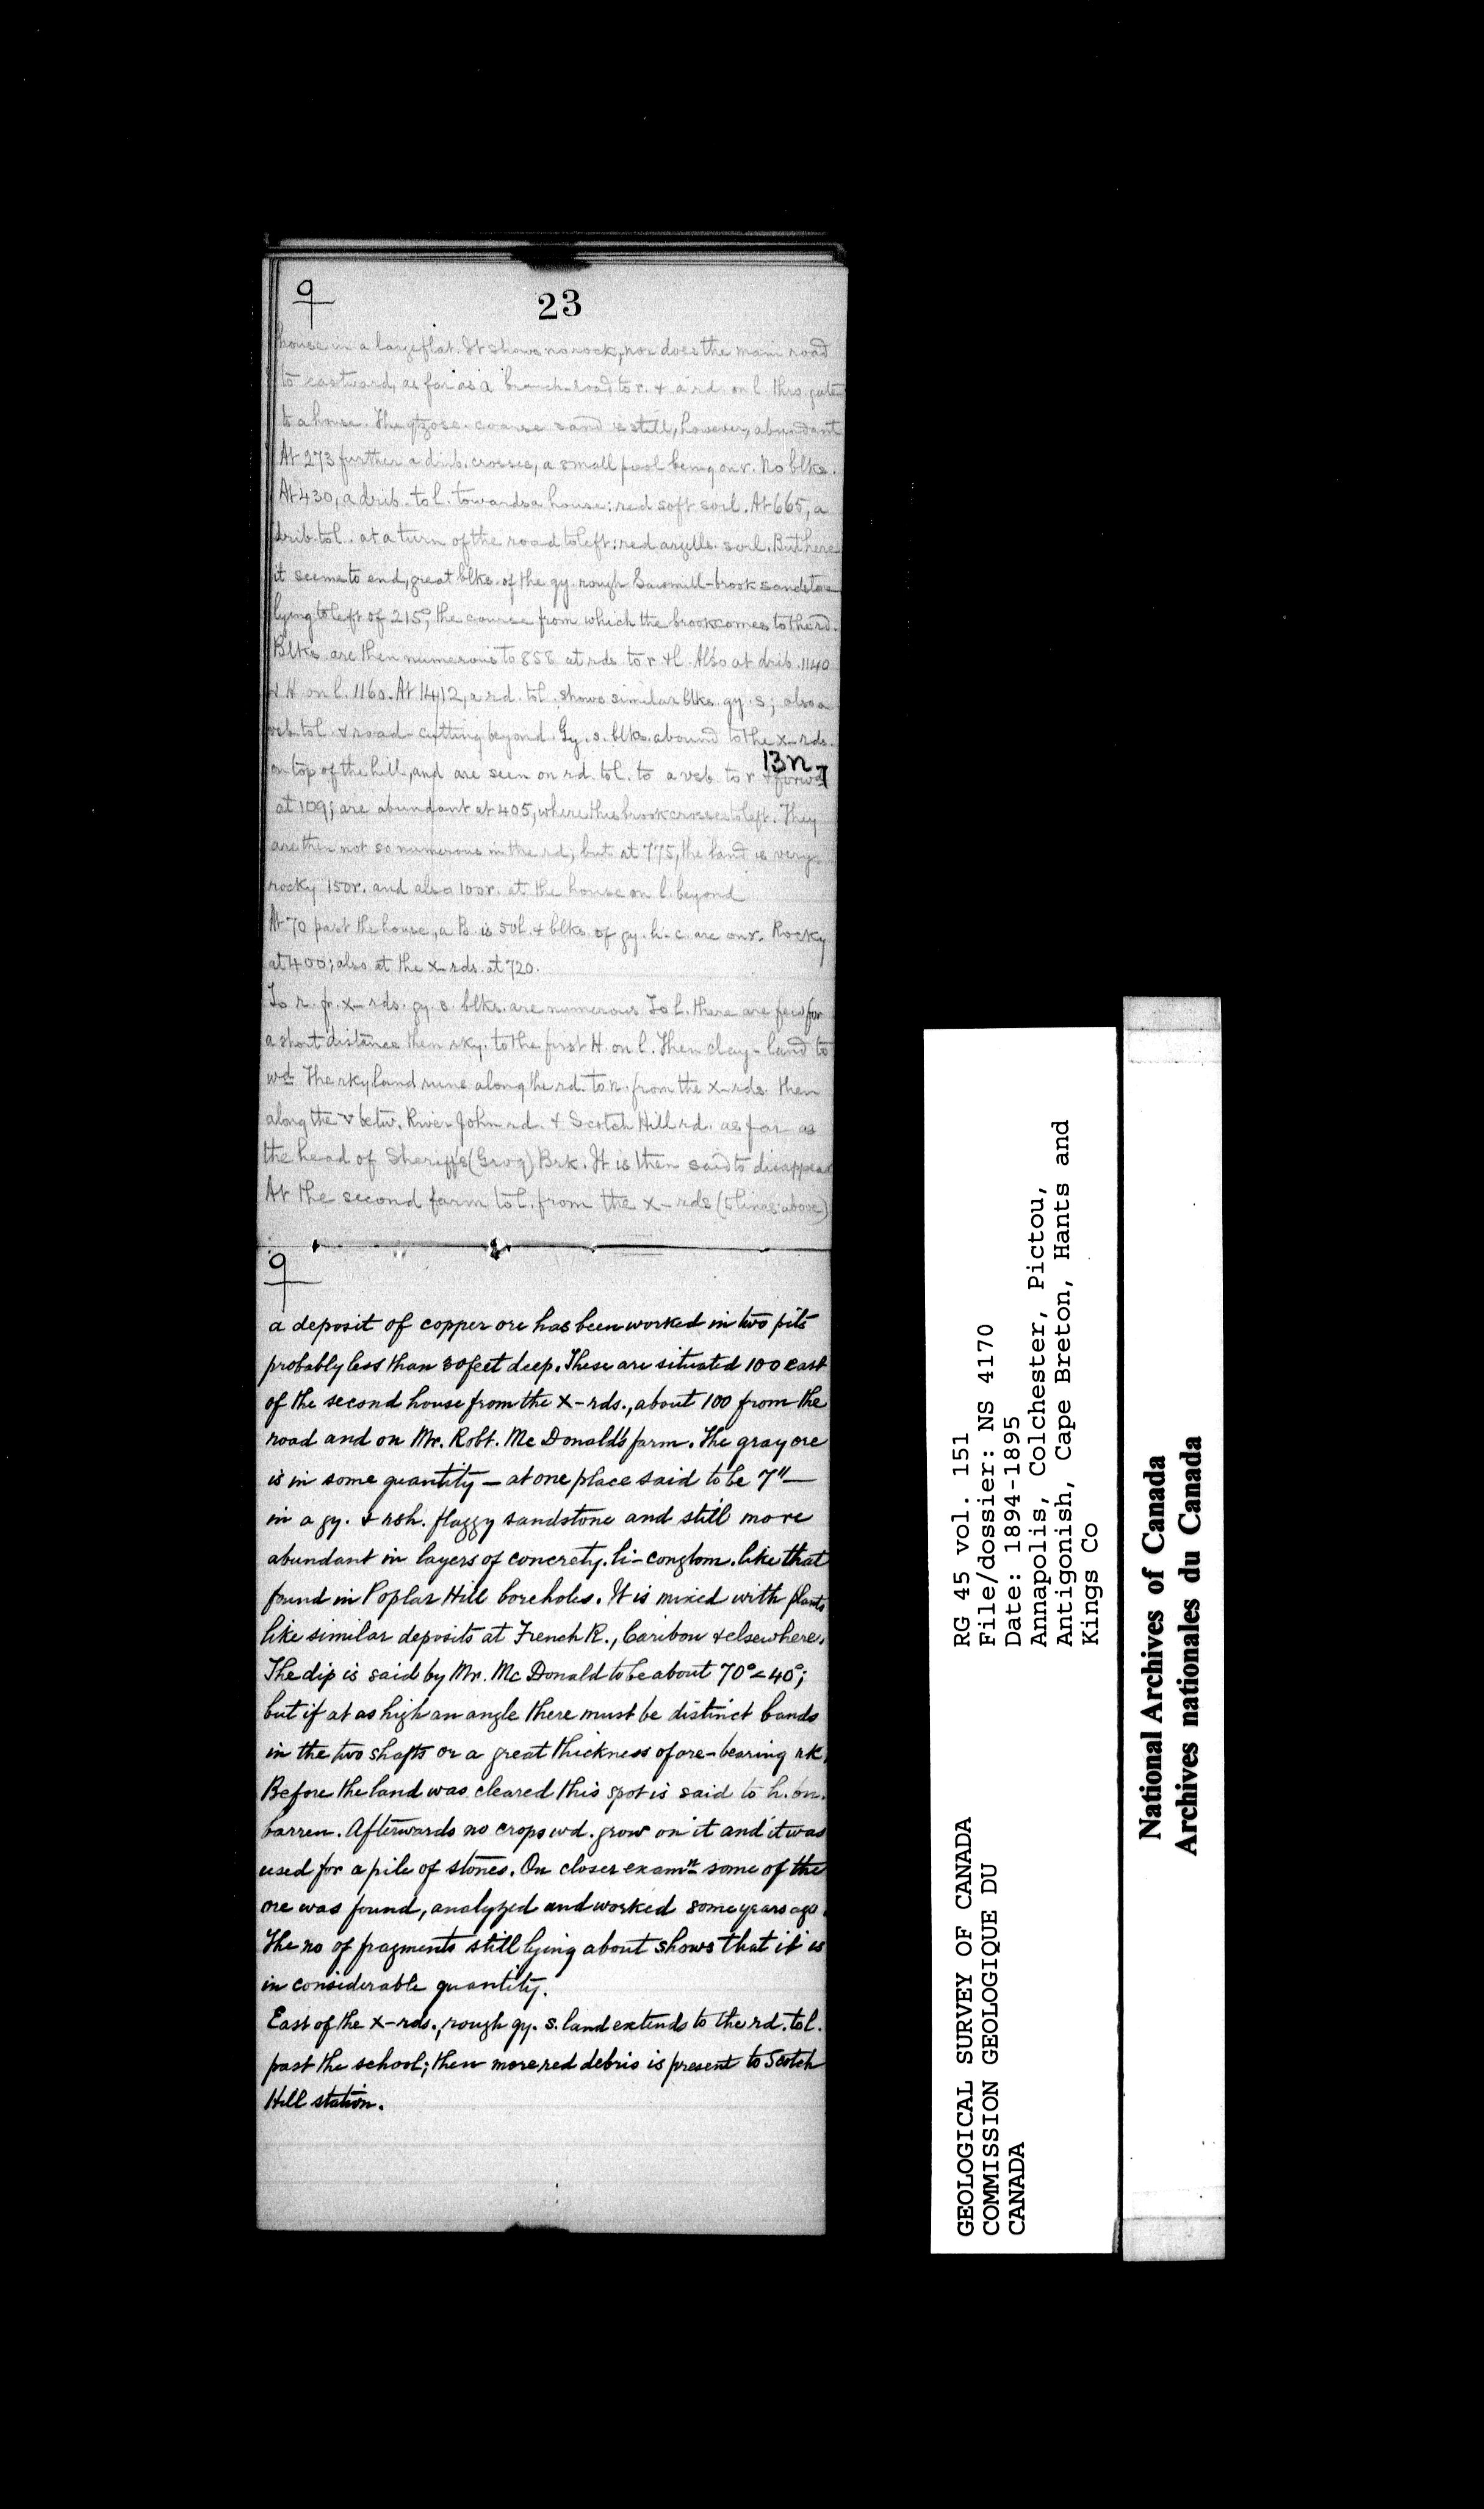 9
23
house in a large flat. It shows no rock, nor does the main road
to eastward, as far as a branch-road to r. & a rd. on l. thro. gate
to a house. The qtzose. coarse sand is still, however, abundant
At 273 further a drib. crosses, a small pool being on r. No blks.
At 430, a drib. to l. towards a house: red soft soil. At 665, a
drib. to l. at a turn of the road to left: red argills. soil. But here
it seems to end, great blks. of the gy. rough Sawmill-brook sandstone
lying to left of 215°, the course from which the brook comes to the rd.
Blks. are then numerous to 858 at rds. to r. & l. Also at drib. 1140
& H on l. 1160. At 1412, a rd. to l. shows similar blks. gy. s; also a
vsb. to l. & road-cutting beyond. Gy. s. blks. abound to the x-rds.
13n
on top of the hill, and are seen on rd. to l. to a vsb. to r. & forwd
at 109; are abundant at 405, where this brook crosses to left. They
are then not so numerous in the rd, but at 775, the land is very
rocky 150r. and also 100r. at the house on l. beyond
At 70 past the house, a B. is 50l. & blks of gy. li-c. are on r. Rocky
at 400; also at the x-rds. at 720.
To r. fr. x-rds. gy. s. blks. are numerous To l. there are few for
a short distance then rky. to the first H. on l. Then clay-land to
wd. The rky land runs along the rd. to n. from the x-rds. then
along the v betw. River John rd. & Scotch Hill rd. as far as
the head of Sheriffs (Grog) Brk. It is then said to disappear
At the second farm to l. from the x-rds (5 lines above)
9
a deposit of copper ore has been worked in two pits
probably less than 30 feet deep. These are situated 100 east
of the second house from the x-rds., about 100 from the
road and on Mr. Robt. Mc Donald's farm. The gray ore
is in some quantity — at one place said to be 7" —
in a gy. & rsh. flaggy sandstone and still more
abundant in layers of concrety. li-conglom. like that
found in Poplar Hill boreholes. It is mixed with plants
like similar deposits at French R., Caribou & elsewhere.
The dip is said by Mr. Mc Donald to be about 70° < 40°;
but if at as high an angle there must be distinct bands
in the two shafts or a great thickness of ore-bearing rk.
Before the land was cleared this spot is said to h. bn.
barren. Afterwards no crops wd. grow on it and it was
used for a pile of stones. On closer examn. some of the
ore was found, analyzed and worked some years ago.
The no of fragments still lying about shows that it is
in considerable quantity.
East of the x-rds., rough gy. s. land extends to the rd. to l.
past the school; then more red debris is present to Scotch
Hill station.
GEOLOGICAL SURVEY OF CANADA
COMMISSION GEOLOGIQUE DU
CANADA
RG 45 vol. 151
File/dossier: NS 4170
Date: 1894-1895
Annapolis, Colchester, Pictou,
Antigonish, Cape Breton, Hants and
Kings Co
National Archives of Canada
Archives nationales du Canada